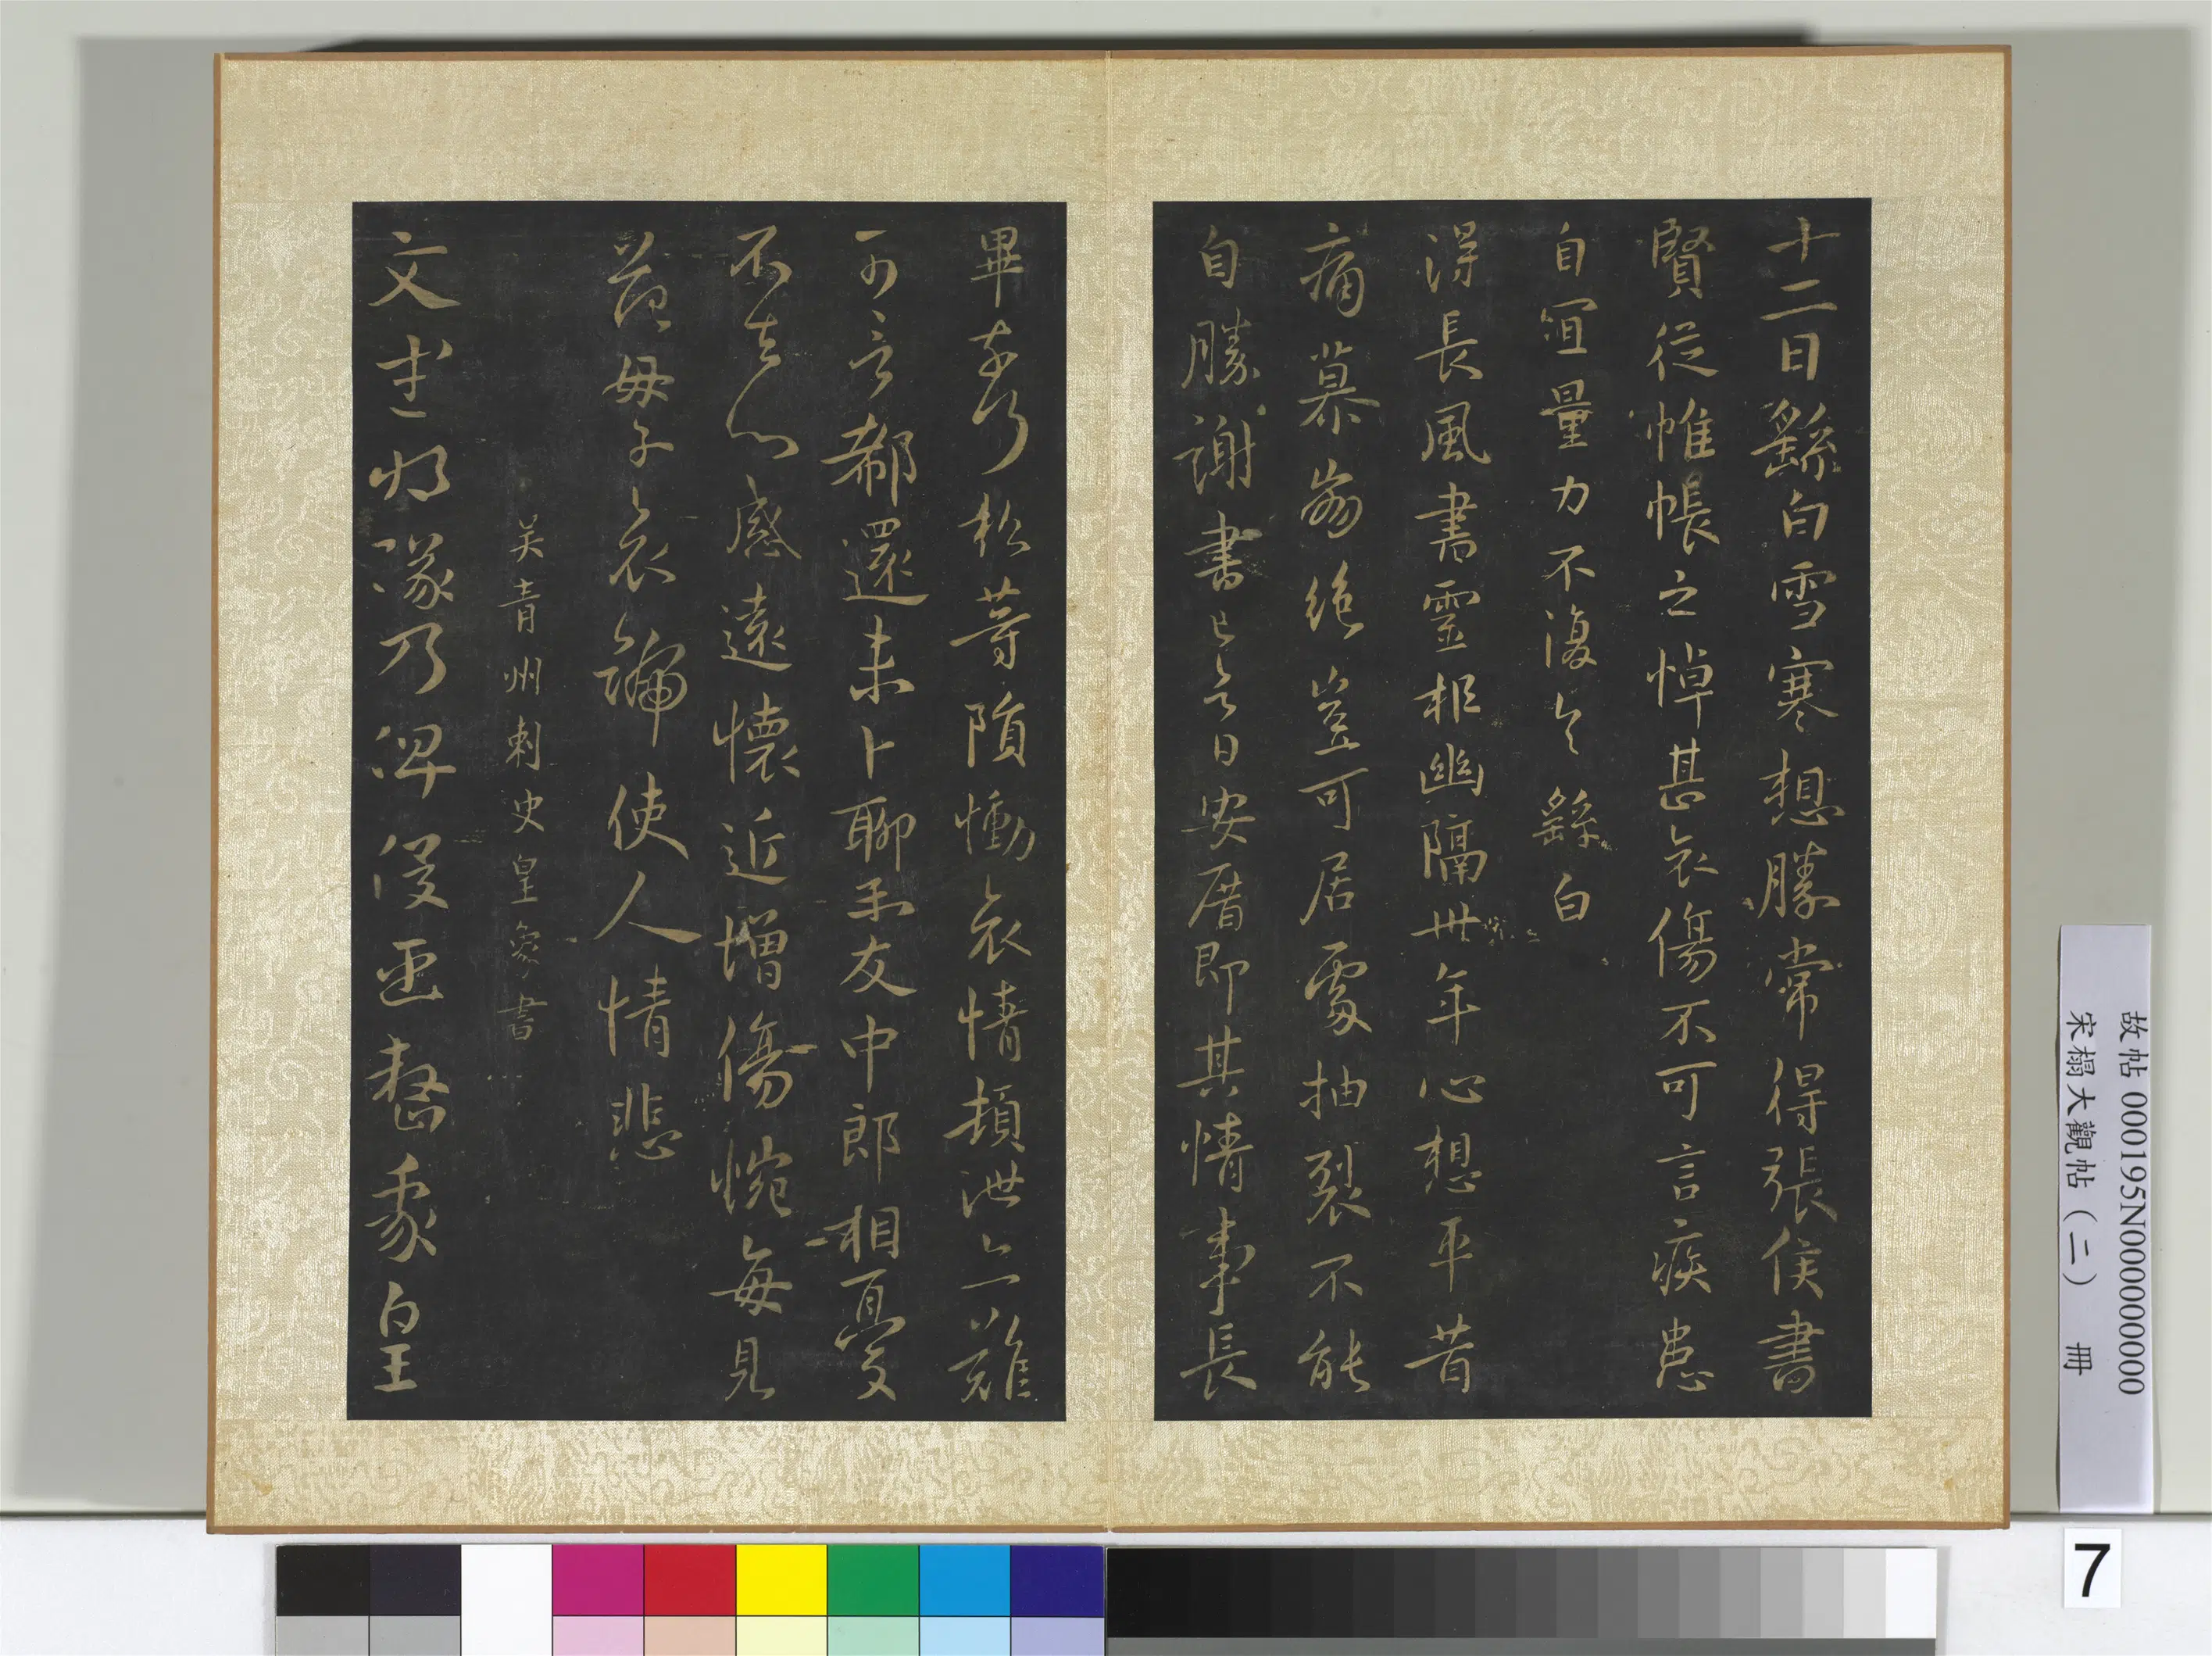 十二日繇白雪寒想勝常得張侯書
賢從帷帳之悼甚哀傷不可言疾患
自宜量力不復具繇白
得長風書靈柩幽隔卅年心想平昔
痛慕崩絕豈可居處抽裂不能
自勝謝書已具日安厝即其情事長
畢奉行松等隕慟哀情頓泄亦難
可言郗還未卜聊示友中郎相憂
不去心感遠懷近增傷惋每見
范母子哀號使人情悲
吴青州刺史皇象書
文武將隊乃俾俊臣整我皇
故帖 000195N000000000
宋榻大觀帖(二) 冊
7